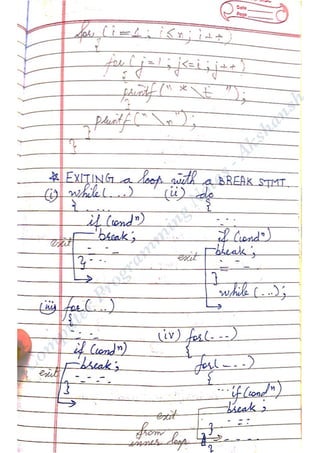 Date
Page
for (i = 1; i<n; i++)
{
for (j=1; j<=i; j++)
{
printf(" * \t ");
}
printf(" \n");
}
}
* EXITING a loop with a BREAK STMT.
(i) while (...) (ii) do
{ .... {
if (condⁿ) ...
break; if (condⁿ)
exit break;
} exit
}
while (...);
(iii) for (...)
{ (iv) for (...)
if (condⁿ) {
break; for (...)
exit {
} ... if (condⁿ)
break;
exit
from }
inner loop }
Computer Programming - Akshansh